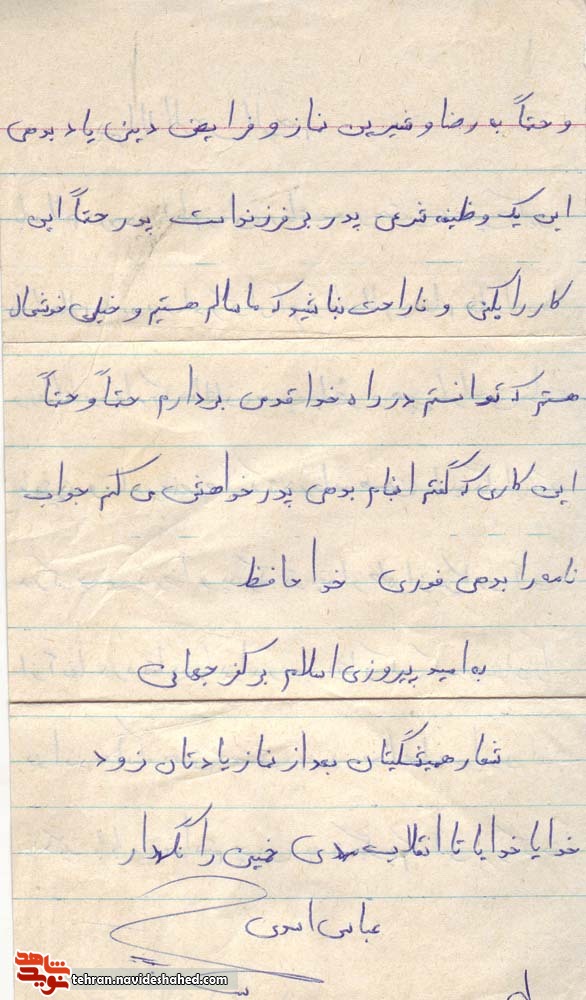 و حتماً به رضا و شیرین نماز و فرایض دینی یاد بدهی
این یک وظیفه شرعی پدر بر فرزند است پدر حتماً این
کار را بکنی و ناراحت نباشید که ما سالم هستیم و خیلی خوشحال
هستم که توانستم در راه خدا قدمی بردارم حتماً و حتماً
این کاری که گفتم انجام بدهی پدر خواهش می کنم جواب
نامه را بدهی فوری خدا حافظ
به امید پیروزی اسلام بر کفر جهانی
شعار همیشگیتان بعد از نماز یادتان نرود
خدایا خدایا تا انقلاب مهدی خمینی را نگهدار
عباس اسدی
شاهد
نوید
tehran.navideshahed.com